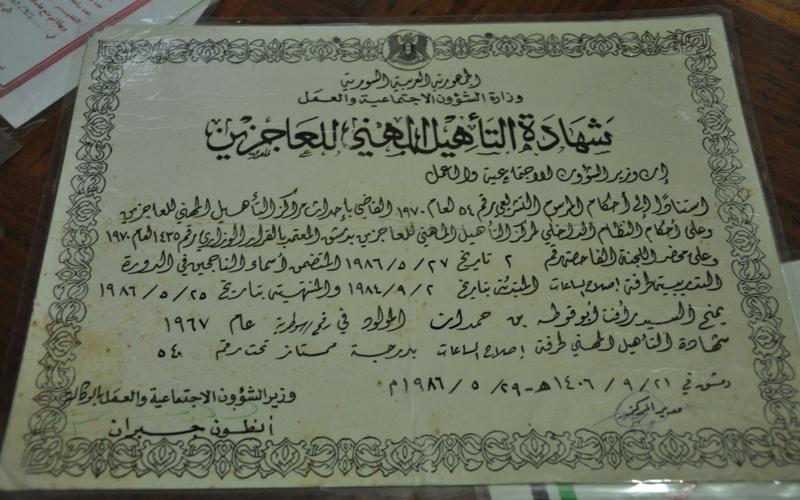 الجمهورية العربية السورية
وزارة الشؤون الاجتماعية والعمل
شهادة التأهيل المهني للعاجزين
إن وزير الشؤون الاجتماعية والعمل
استناداً إلى أحكام المرسوم التشريعي رقم ٥٤ لعام ١٩٧٠ القاضي بإحداث مراكز التأهيل المهني للعاجزين
وعلى أحكام النظام الداخلي لمركز التأهيل المهني للعاجزين بدمشق المعتمد بالقرار الوزاري رقم ١٤٣٥ لعام ١٩٧٠
وعلى محضر اللجنة الفاحصة رقم ٢ تاريخ ٢٧ / ٥ / ١٩٨٦ المتضمن أسماء الناجحين في الدورة
التدريبية طرفة إصلاح الساعات المبتدئة بتاريخ ٢ / ٩ / ١٩٨٤ والمنتهية بتاريخ ٢٥ / ٥ / ١٩٨٦
يمنح السيد رأفت أبو قوطه بن حمدان المولود في عام ١٩٦٧
شهادة التأهيل المهني طرفة إصلاح الساعات بدرجية ممتاز تحت رقم ٥٤٠
دمشق في ٢١ / ٩ / ١٤٠٦ هـ - ٢٩ / ٥ / ١٩٨٦ م
مدير المركز
وزير الشؤون الاجتماعية والعمل بالوكالة
أنطون جبران